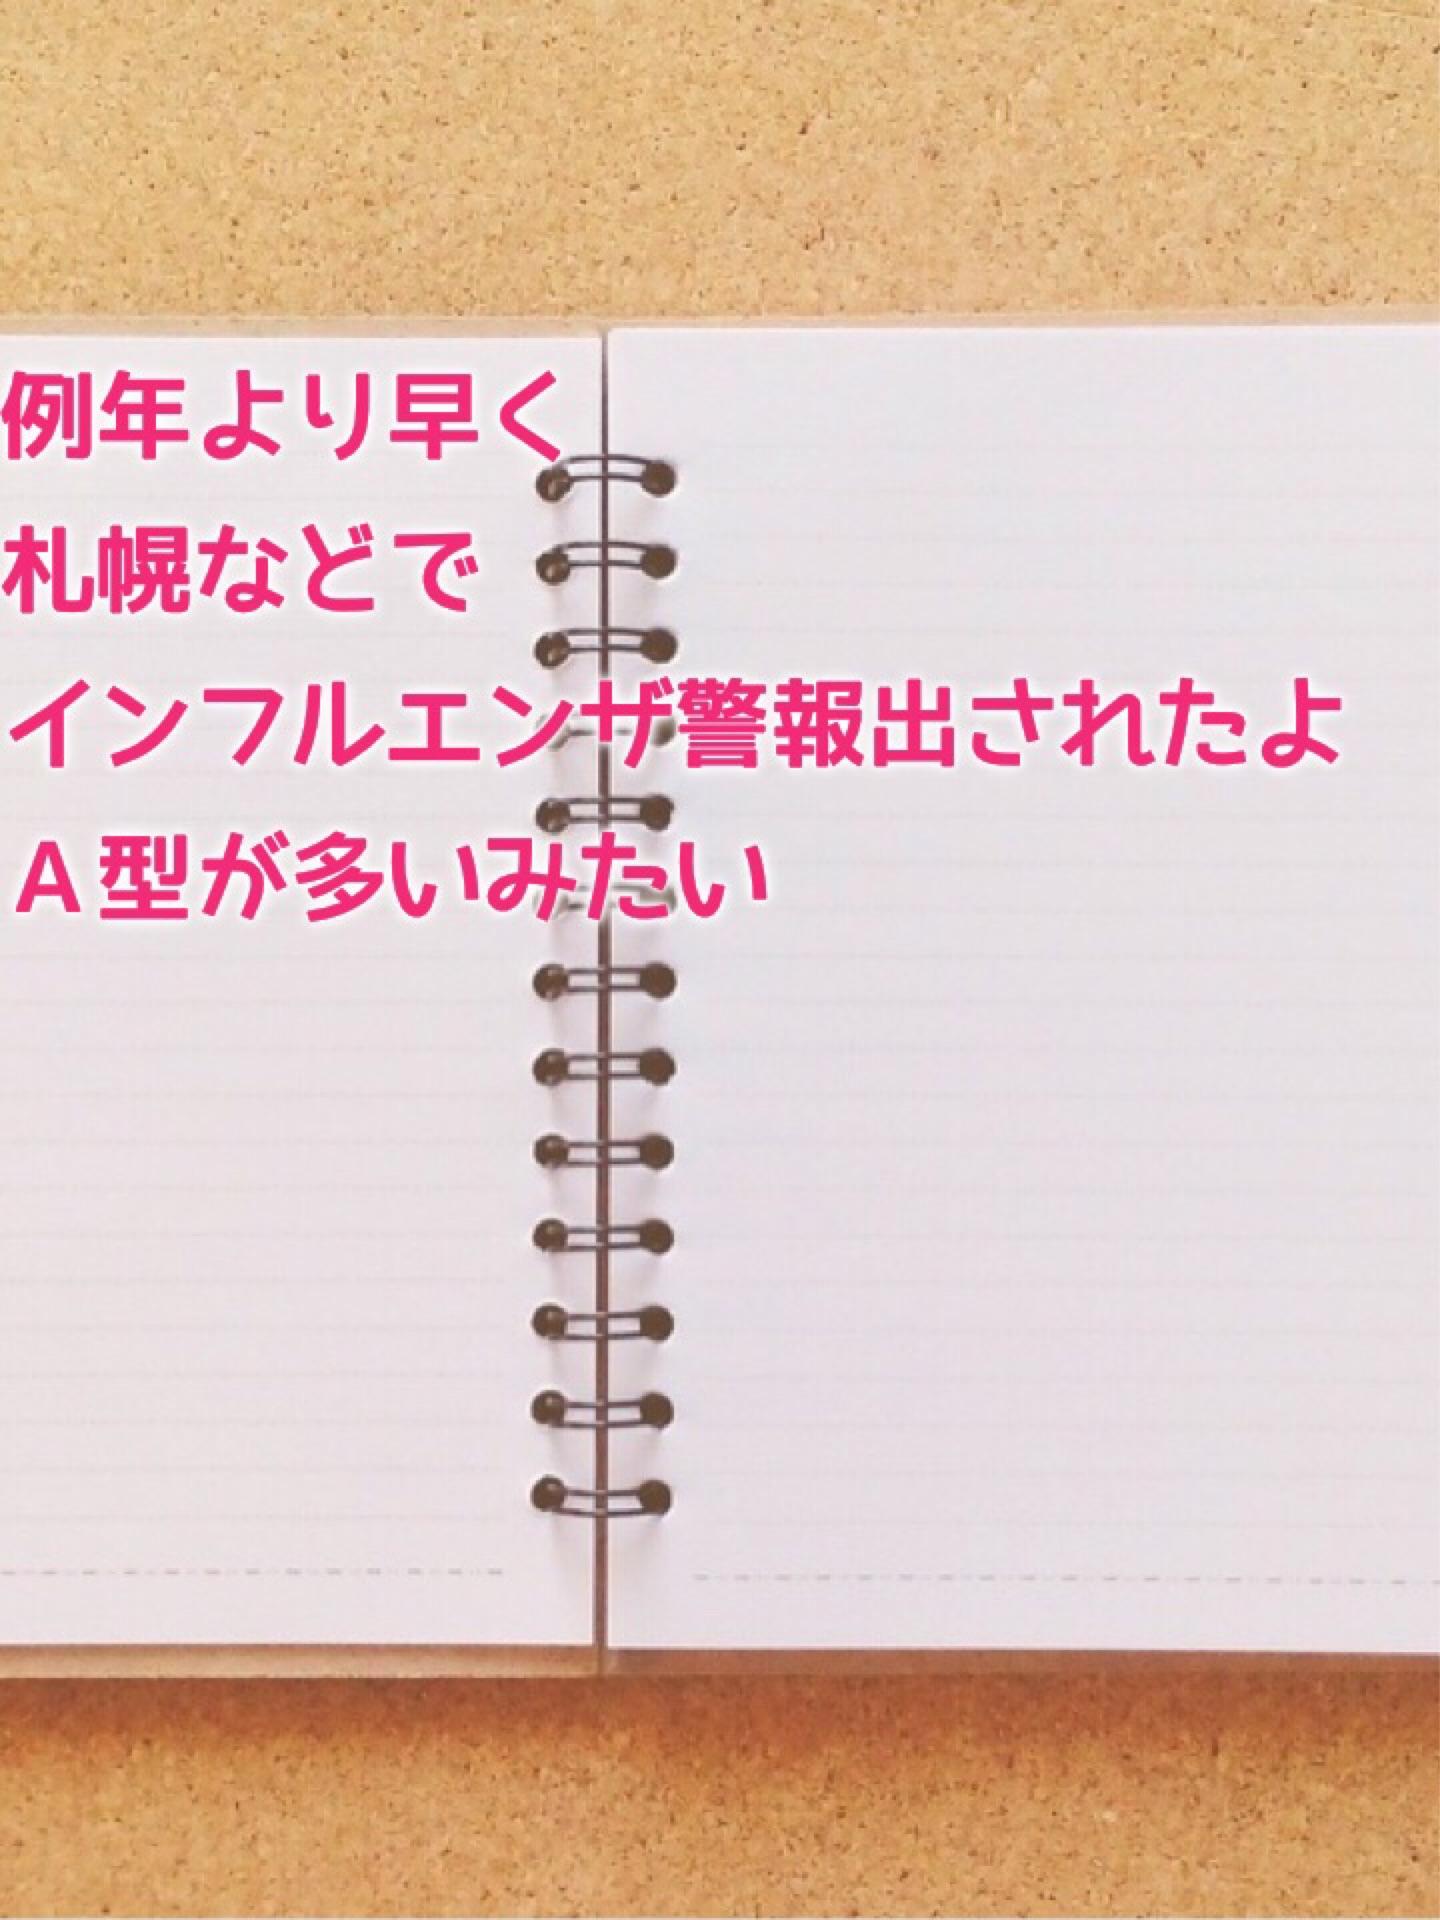 例年より早く
札幌などで
インフルエンザ警報出されたよ
Ａ型が多いみたい